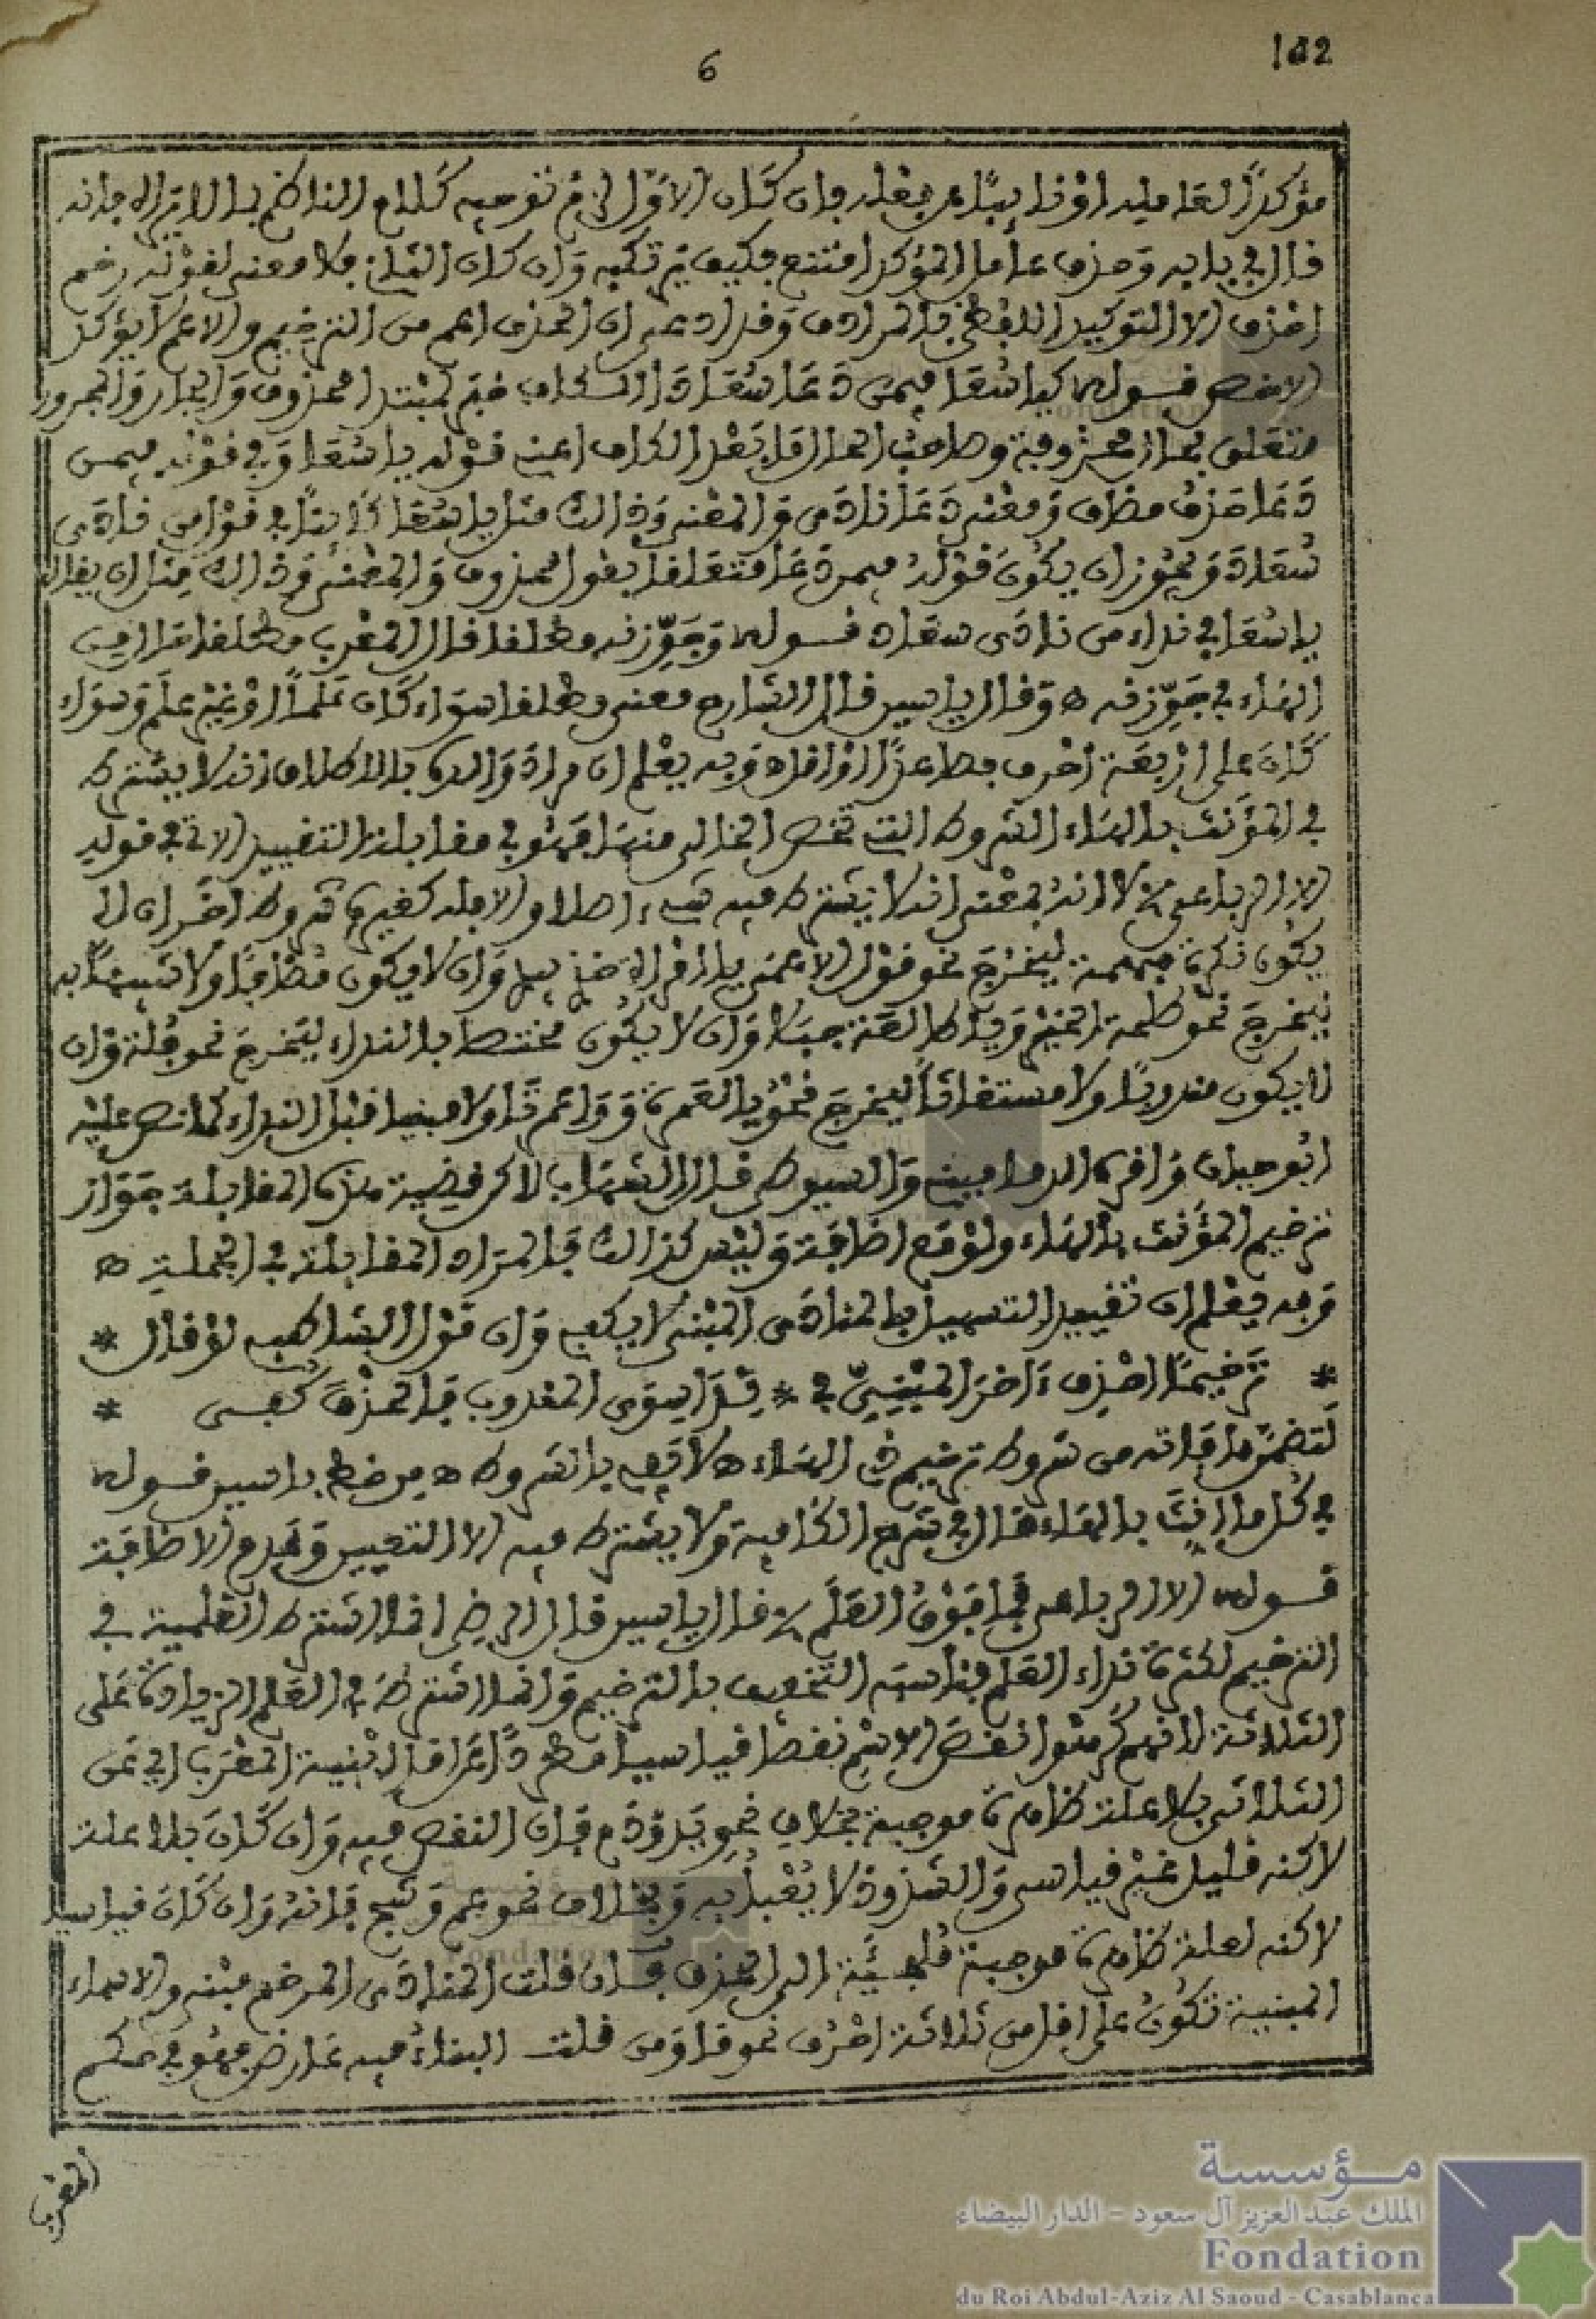 162
6
مؤكدا لعامله او نايبا عن فعله فان كان الاول لزم توجيه كلام الناظم بما لا يراه فانه
قال في بابه وحذف عامل المؤكد امتنع فكيف يرتكبه وان كان الثاني فلا معنى لقوله رخم
احذف الا التوكيد اللفظي بالمرادف وقد ادعى ان الحذف اعم من الترخيم والاعم لا يؤكد
الاخص قوله كيا سعا فيمن دعا سعادا الكاف خبر لمبتدا محذوف والجار والمجرور
متعلق بحال محذوفة وصاحب الحال ما بعد الكاف اعني قوله يا سعا وفي قوله فيمن
دعا حذف مضاف ومعنى دعا نادى والمعنى وذالك مثل يا سعا كاينا في قول من نادى
سعاد ويجوز ان يكون قوله فيمن دعا متعلقا بقول محذوف والمعنى وذالك مثل ان يقال
يا سعا في نداء من نادى سعاد قوله وجوزنه مطلقا قال المعرب مطلقا حال من
الهاء في جوزنه ه وقال ياسين قال الشارح معنى مطلقا سواء كان علما او غير علم وسواء
كان على اربعة احرف فصاعدا او اقل ه وبه يعلم ان مراده والده بالاطلاق انه لا يشترط
في المؤنث بالهاء الشروط التي تخص الخالي منها فهو في مقابلة التقييد الاتي في قوله
الا الرباعي الخ لا انه بمعنى انه لا يشترط فيه شيء اصلا والا فله كغيره شروط اخر ان لا
يكون نكرة مبهمة ليخرج نحو قول الاعمى يا امراة خذ بيدي وان لا يكون مضافا ولا شبيها به
ليخرج نحو طلحة الخير ويا طالعة جبلا وان لا يكون مختصا بالنداء ليخرج نحو فلة وان
لا يكون مندوبا ولا مستغاثا ليخرج نحو يا لعمرة ووا عمرتا ولا مبنيا قبل النداء كما نص عليه
ابو حيان واقره الدماميني والسيوطي قال الشهاب لاكن قضية هذه المقابلة جواز
ترخيم المؤنث بالهاء ولو مع اضافة وليس كذالك فالمراد المقابلة في الجملة ه
وبه يعلم ان تقييد التسهيل بالمنادى المبني لا يكفي وان قول الشاطبي لو قال *
* ترخيما احذف ءاخر المبني في * ندا سوى المندوب فالحذف كفى *
لتضمن ما فاته من شروط ترخيم ذي الهاء ه لا يفي بالشروط ه من خط ياسين قوله
في كل ما انث بالهاء قال في شرح الكافية ولا يشترط فيه الا التعيين وعدم الاضافة
قوله الا الرباعي فما فوق العلم الخ قال ياسين قال الرضي انما اشترط العلمية في
الترخيم لكثرة نداء العلم فناسبه التخفيف بالترخيم وانما اشترط في العلم الزيادة على
الثلاثة لانهم كرهوا نقص الاسم نقصا قياسيا مطردا عن اقل ابنية المعرب اي عن
الثلاثي بلا علة ظاهرة موجبة بخلاف نحو يد ودم فان النقص فيه وان كان بلا علة
لاكنه قليل غير قياسي والشذوذ لا يعبأ به وبخلاف نحو عم وشج فانه وان كان قياسيا
لاكنه لعلة ظاهرة موجبة ملجئة الى الحذف فان قلت المنادى المرخم مبني والاسماء
المبنية تكون على اقل من ثلاثة احرف نحو ما ومن قلت البناء فيه عارض فهو في حكم
المعرب
مؤسسة
الملك عبد العزيز آل سعود - الدار البيضاء
Fondation
du Roi Abdul-Aziz Al Saoud - Casablanca